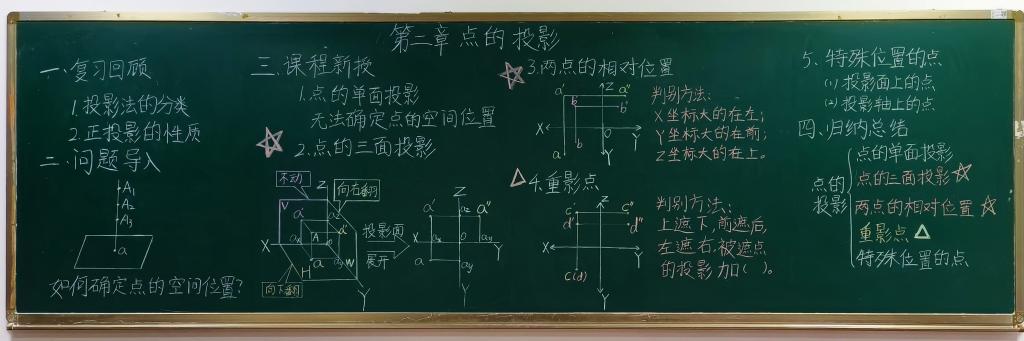 第二章 点的投影
一、复习回顾
1.投影法的分类
2.正投影的性质
二、问题导入
A₁
A₂
A₃
a
如何确定点的空间位置?
三、课程新授
1.点的单面投影
无法确定点的空间位置
2.点的三面投影
不动
向右翻
向下翻
Z
V
a'
az
a"
X
ax
A
o
W
a
ay
H
Y
投影面
展开
Z
a'
az
a"
X
ax
o
ay
Y
a
ay
Y
3.两点的相对位置
a' b' Z a"
b"
X O Y
a b
Y
判别方法:
X坐标大的在左;
Y坐标大的在前;
Z坐标大的在上。
4.重影点
c' Z c"
d' d"
X Y
c(d)
Y
判别方法:
上遮下,前遮后,
左遮右,被遮点
的投影加( )。
5.特殊位置的点
(1)投影面上的点
(2)投影轴上的点
四、归纳总结
点的
投影
点的单面投影
点的三面投影
两点的相对位置
重影点
特殊位置的点